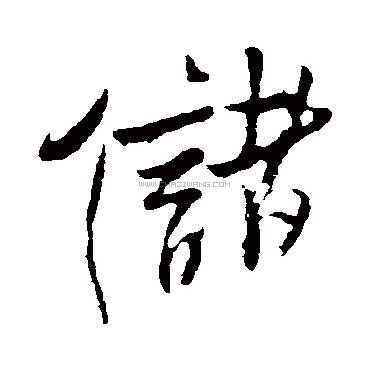 儲
WWW.CHAZIWANG.COM